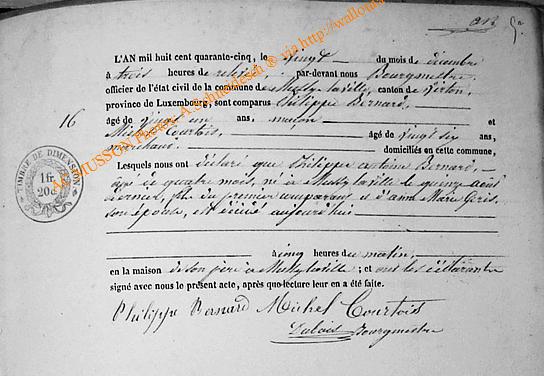 L'AN mil huit cent quarante-cinq, le vingt du mois de décembre
à trois heures de relevé, par-devant nous Bourgmestre
officier de l'état civil de la commune de Mussy la ville, canton de Virton,
province de Luxembourg, sont comparus Philippe Bernard,
16
âgé de vingt un ans, maçon et
Michel Courtois, âgé de vingt six ans,
marchand domiciliés en cette commune,
Lesquels nous ont déclaré que Philippe antoine Bernard,
agé de quatre mois, né à Mussy la ville le quinze août
dernier, fils du premier comparant et d'anne Marie
son épouse, est décédé aujourd'hui
à cinq heures du matin,
en la maison de son père à Mussy la ville ; et ont les déclarants
signé avec nous le présent acte, après que lecture leur en a été faite.
Philippe Bernard Michel Courtois
Bourgmestre
TIMBRE DE DIMENSION
A. MUSSON Photos A. Schneidesch @ via http://wallonia